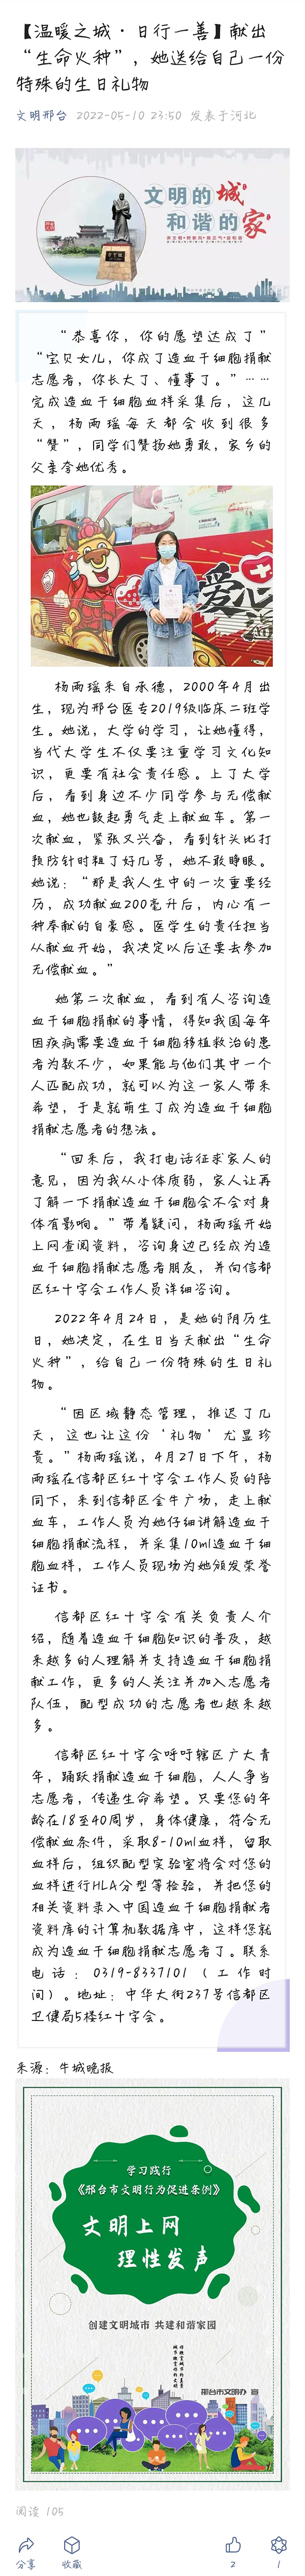 【温暖之城·日行一善】献出
“生命火种”，她送给自己一份
特殊的生日礼物
文明邢台 2022-05-10 23:50 发表于河北
文明的城
和谐的家
“恭喜你，你的愿望达成了”
“宝贝女儿，你成了造血干细胞捐献
志愿者，你长大了、懂事了。”……
完成造血干细胞血样采集后，这几
天，杨雨瑶每天都会收到很多
“赞”，同学们赞扬她勇敢，家乡的
父亲夸她优秀。
爱心
杨雨瑶来自承德，2000年4月出
生，现为邢台医专2019级临床二班学
生。她说，大学的学习，让她懂得，
当代大学生不仅要注重学习文化知
识，更要有社会责任感。上了大学
后，看到身边不少同学参与无偿献
血，她也鼓起勇气走上献血车。第一
次献血，紧张又兴奋，看到针头比打
预防针时粗了好几号，她不敢睁眼。
她说：“那是我人生中的一次重要经
历，成功献血200毫升后，内心有一
种奉献的自豪感。医学生的责任担当
从献血开始，我决定以后还要去参加
无偿献血。”
她第二次献血，看到有人咨询造
血干细胞捐献的事情，得知我国每年
因疾病需要造血干细胞移植救治的患
者为数不少，如果能与他们其中一个
人匹配成功，就可以为这一家人带来
希望，于是就萌生了成为造血干细胞
捐献志愿者的想法。
“回来后，我打电话征求家人的
意见，因为我从小体质弱，家人让再
了解一下捐献造血干细胞会不会对身
体有影响。”带着疑问，杨雨瑶开始
上网查阅资料，咨询身边已经成为造
血干细胞捐献志愿者朋友，并向信都
区红十字会工作人员详细咨询。
2022年4月24日，是她的阴历生
日，她决定，在生日当天献出“生命
火种”，给自己一份特殊的生日礼
物。
“因区域静态管理，推迟了几
天，这也让这份‘礼物’尤显珍
贵。”杨雨瑶说，4月27日下午，杨
雨瑶在信都区红十字会工作人员的陪
同下，来到信都区金牛广场，走上献
血车，工作人员为她仔细讲解造血干
细胞捐献流程，并采集10ml造血干细
胞血样，工作人员现场为她颁发荣誉
证书。
信都区红十字会有关负责人介
绍，随着造血干细胞知识的普及，越
来越多的人理解并支持造血干细胞捐
献工作，更多的人关注并加入志愿者
队伍，配型成功的志愿者也越来越
多。
信都区红十字会呼吁辖区广大青
年，踊跃捐献造血干细胞，人人争当
志愿者，传递生命希望。只要您的年
龄在18至40周岁，身体健康，符合无
偿献血条件，采取8-10ml血样，留取
血样后，组织配型实验室将会对您的
血样进行HLA分型等检验，并把您的
相关资料录入中国造血干细胞捐献者
资料库的计算机数据库中，这样您就
成为造血干细胞捐献志愿者了。联系
电话：0319-8337101（工作时
间）。地址：中华大街237号信都区
卫健局5楼红十字会。
来源：牛城晚报
学习践行
《邢台市文明行为促进条例》
文明上网
理性发声
创建文明城市 共建和谐家园
邢台市文明办 宣
阅读 105
分享
收藏
2
1